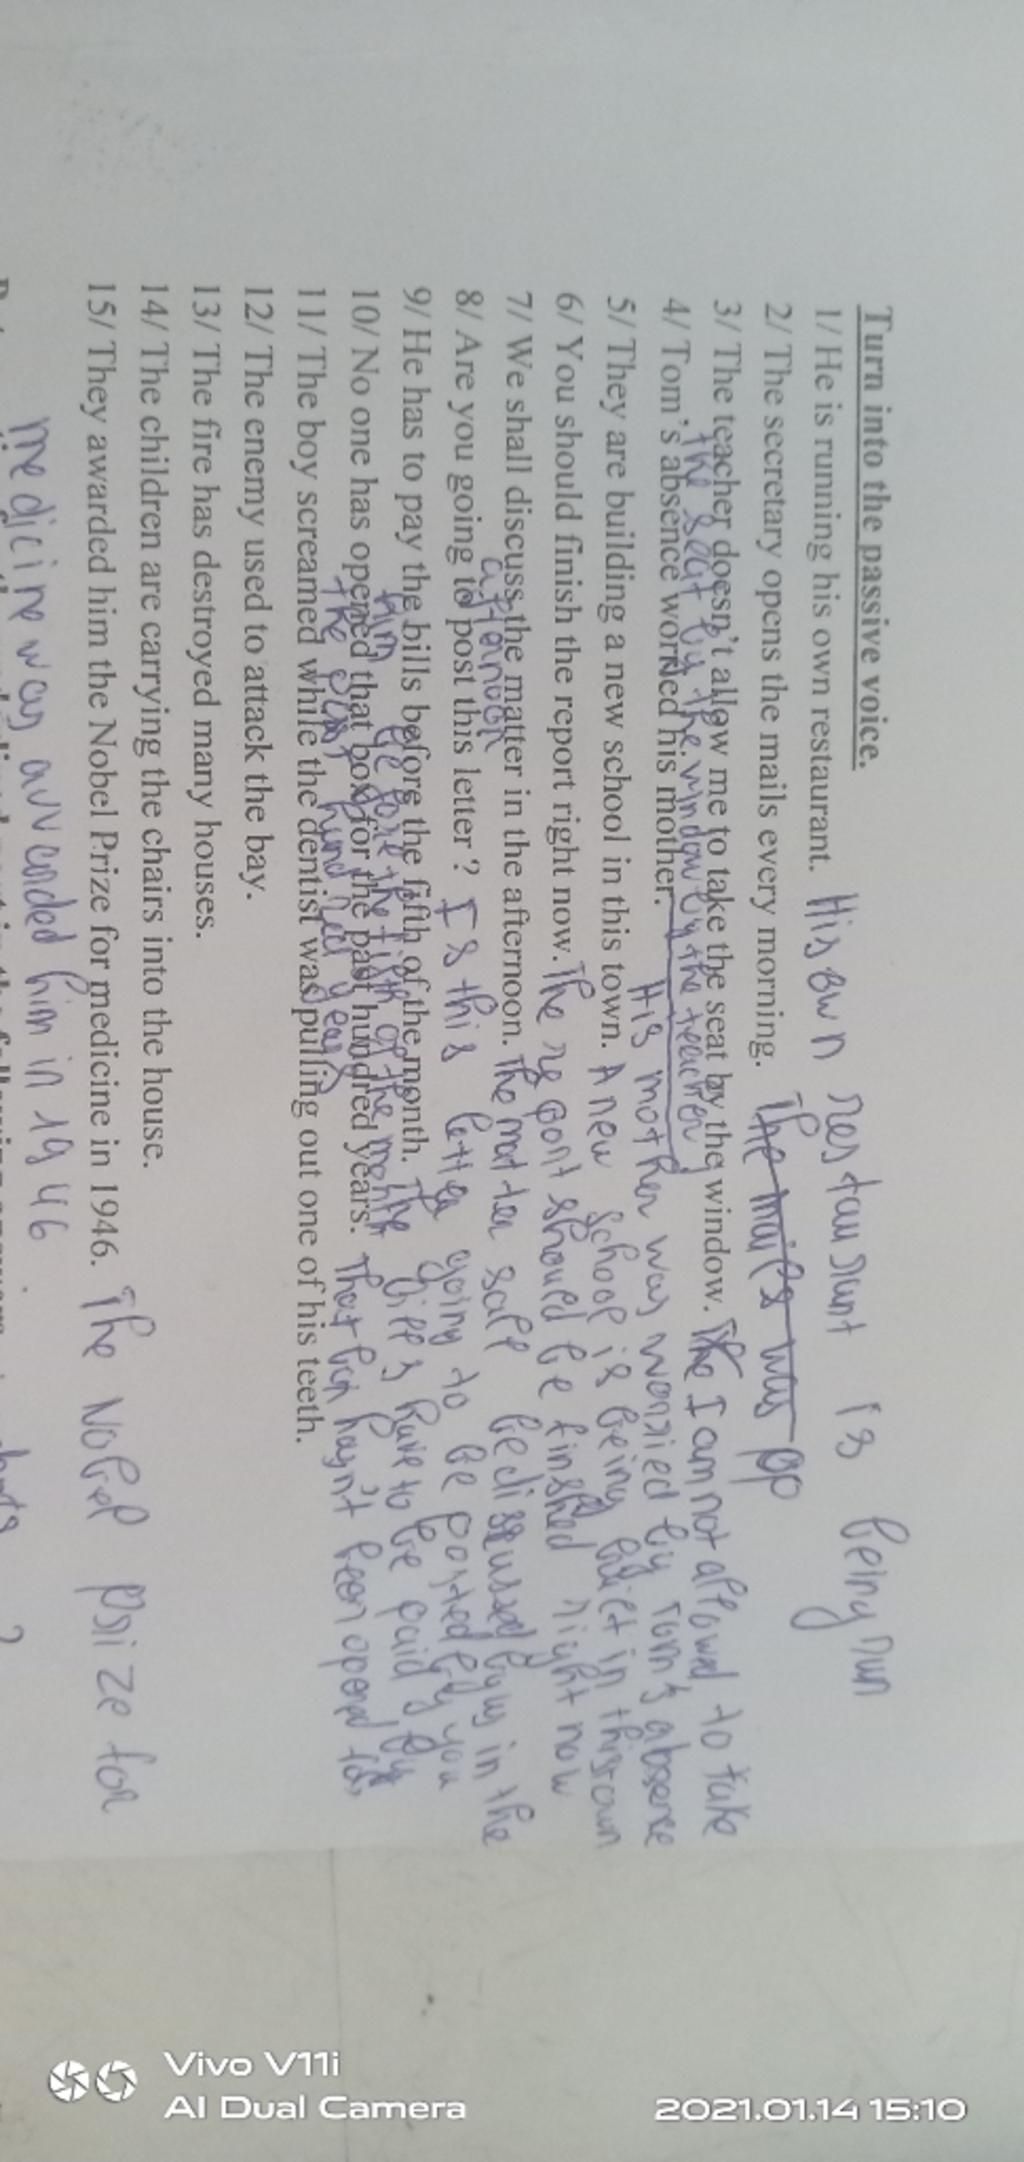 Turn into the passive voice.
1/ He is running his own restaurant. His own restaurant is being run
2/ The secretary opens the mails every morning. The mails was op
3/ The teacher doesn't allow me to take the seat by the window. The I am not allowed to take
the seat by the window by the teacher
4/ Tom's absence worried his mother. His mother was worried by Tom's absence
5/ They are building a new school in this town. A new school is being built in this town
6/ You should finish the report right now. The report should be finshed right now
7/ We shall discuss the matter in the afternoon. The matter sall be discussed by us in the
8/ Are you going to post this letter ? Is this letter going to be posted by you
9/ He has to pay the bills before the fifth of the month. The bills have to be paid by
him before the fifth of the month
10/ No one has opened that box for the past hundred years. That box hasn't been opened for
the past hundred years
11/ The boy screamed while the dentist was pulling out one of his teeth.
12/ The enemy used to attack the bay.
13/ The fire has destroyed many houses.
14/ The children are carrying the chairs into the house.
15/ They awarded him the Nobel Prize for medicine in 1946. The Nobel prize for
medicine was awarded him in 1946
Vivo V11i
AI Dual Camera
2021.01.14 15:10